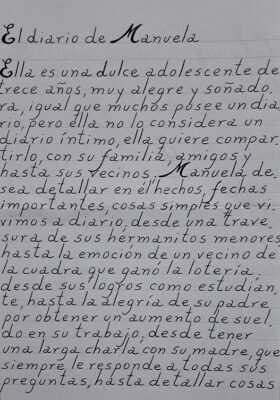 El diario de Manuela
Ella es una dulce adolescente de
trece años, muy alegre y soñado.
ra, igual que muchos posee un dia
rio, pero ella no lo considera un
diario íntimo, ella quiere compar.
tirlo, con su familia, amigos y
hasta sus vecinos. Mañuela de.
sea detallar en él hechos, fechas
importantes, cosas simples que vi.
vimos a diario, desde una trave.
sura de sus hermanitos menores,
hasta la emoción de un vecino de
la cuadra que ganó la lotería,
desde sus logros como estudian.
te, hasta la alegría de su padre
por obtener un aumento de suel
do en su trabajo, desde tener
una larga charla con su madre, que
siempre le responde a todas sus
preguntas, hasta detallar cosas